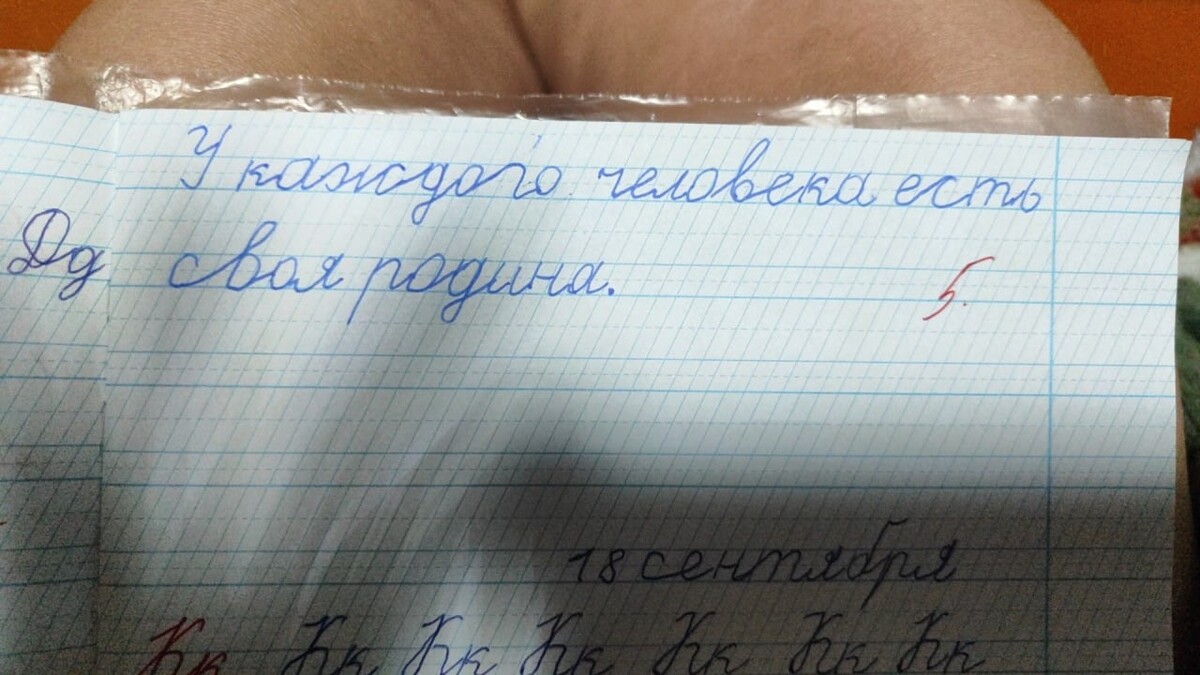 У каждого человека есть
Дд своя родина.
5.
18 сентября
Кк Кк Кк Кк Кк Кк Кк